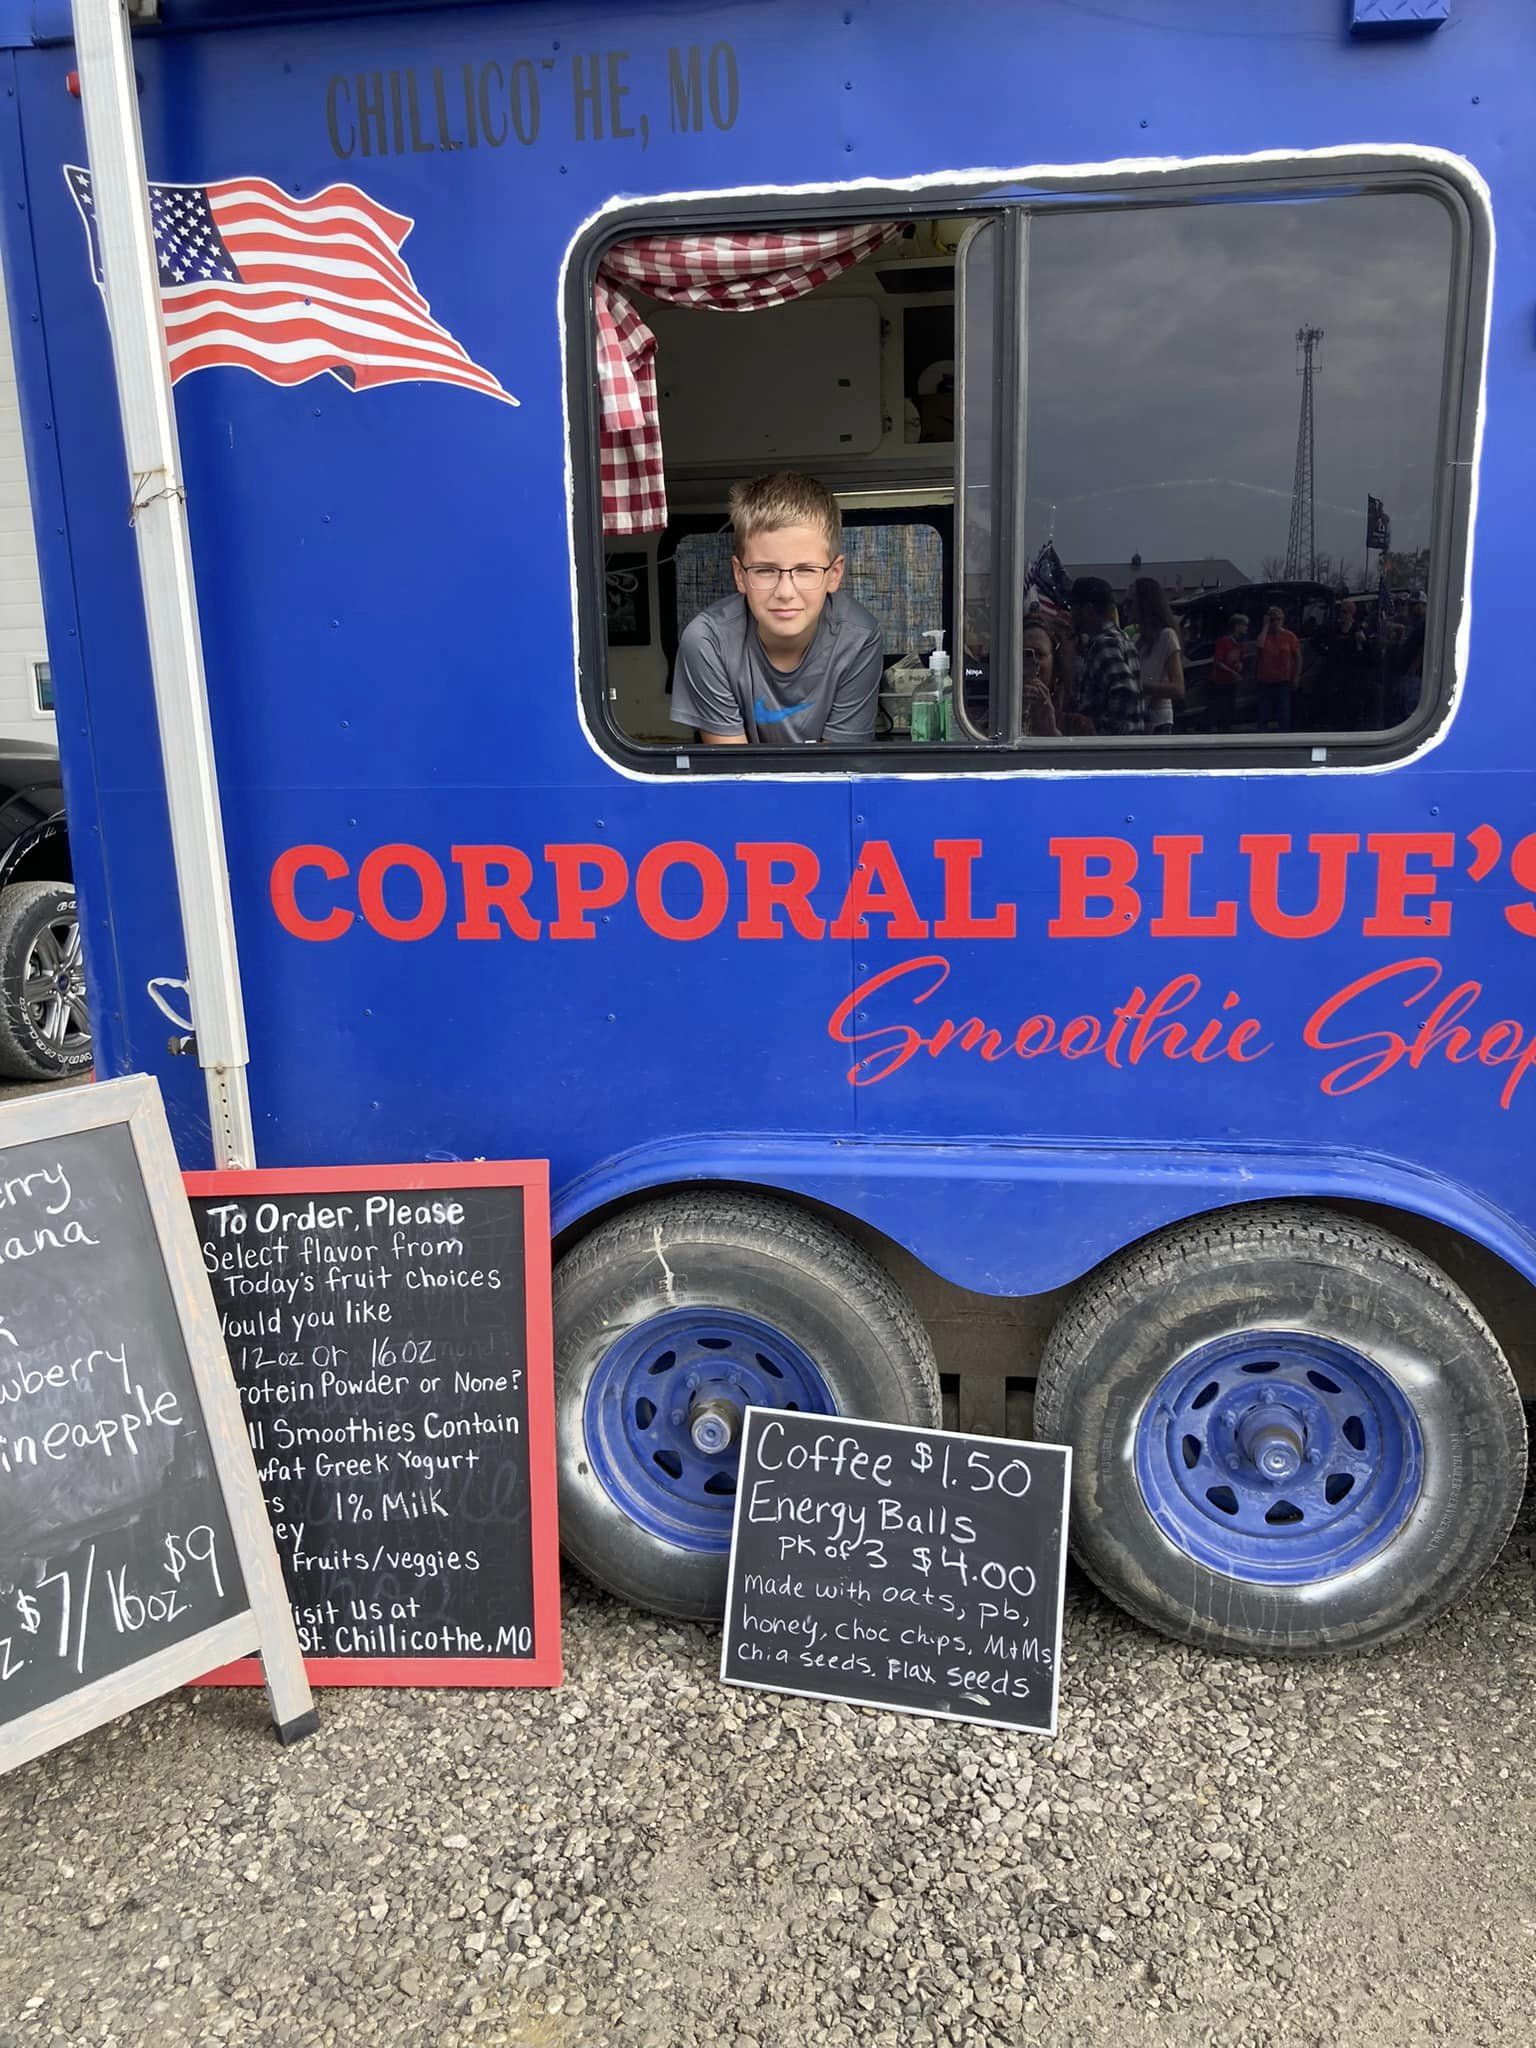 CHILLICO HE, MO
NINJA
CORPORAL BLUE'S
Smoothie Shop
$7/16oz. $9
To Order, Please
Select flavor from
Today's fruit choices
ould you like
12oz or 16oz
rotein Powder or None?
ll Smoothies Contain
wfat Greek Yogurt
1% Milk
Fruits/veggies
isit us at
St. Chillicothe, MO
Coffee $1.50
Energy Balls
PK of 3 $4.00
made with oats, pb,
honey, choc chips, M&Ms,
chia seeds, Flax seeds